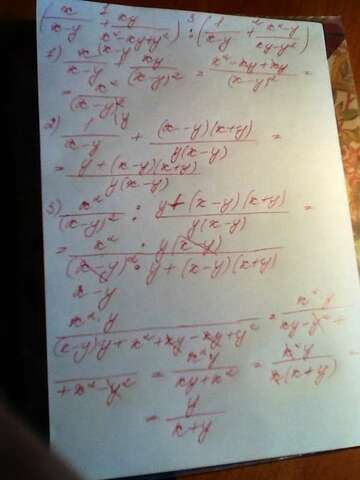 (x/(x-y) + xy/(x²-xy+y²)) : (1/(x-y) + (x²-y)/(xy-y²))
1) x(x-y)/(x-y) + xy/(x-y)² = (x²-xy+xy)/(x-y)² =
= x²/(x-y)²
2) 1/(x-y) + (x-y)(x+y)/(y(x-y)) =
= (y+(x-y)(x+y))/(y(x-y))
3) x²/(x-y)² : (y+(x-y)(x+y))/(y(x-y)) =
= x²/(x-y)² : y(x-y)/(y+(x-y)(x+y))
x-y
x²·y/((x-y)y+x²+xy-xy+y²) = x²y/(xy-y²+
+x²-y²) = x²y/(xy+x²) = x²y/(x(x+y)) =
= y/(x+y)